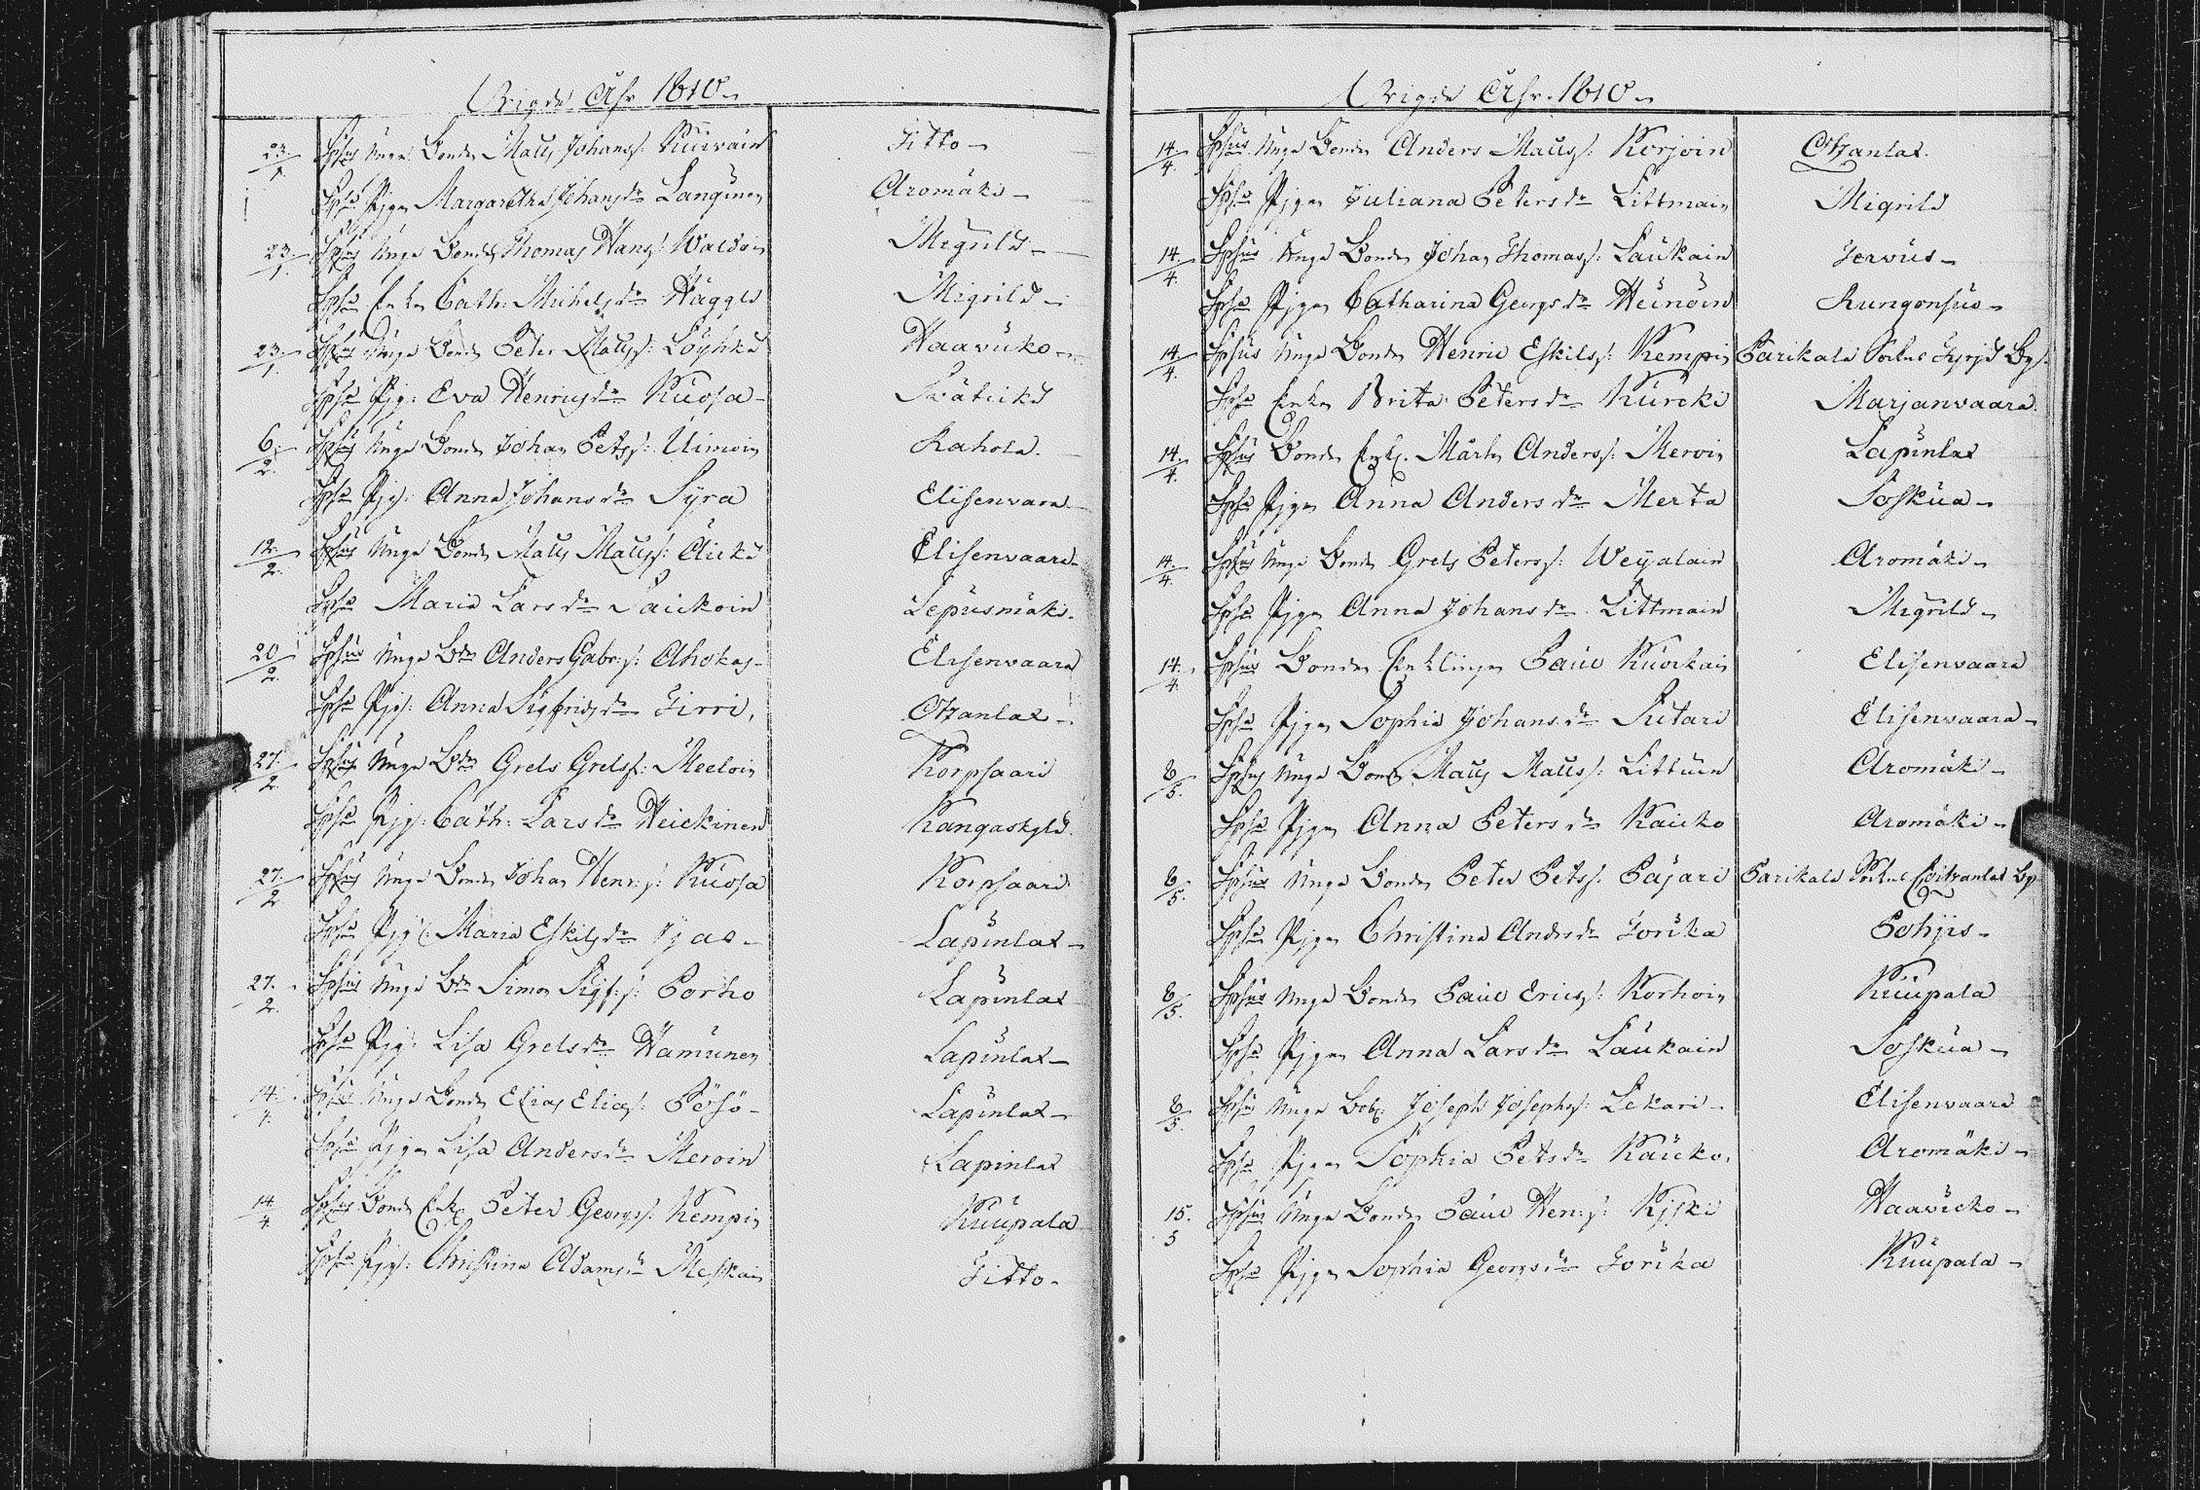 Vigde Åhr 1810
23/1 Spsus Unge Bonden Matts Johanss: Kuivain Titto
Spsa Pigan Margaretha Johansdr Länginen Aromäki
23/1 Spsus Unge Bonden Thomas Hanss: Waldoin Migrild
Spsa Enkan Cath: Michelsdr Häggle Migrild
23/1 Spsus Unge Bond Peter Matss: Löyhkä Haavuko
Spsa Pig: Eva Henricsdr Kuosa
6/2 Spsus Unge Bonden Johan Petss: Uimoin Rahola
Spsa Pig: Anna Johansdr Syra Elisenvara
12/2 Spsus Unge Bonden Matts Matss: Auké Elisenvaara
Spsa Maria Larsdr Lepusmäki
20/2 Spsus Unge Bdn Anders Gabr:s: Ahokas Elisenvaara
Spsa Pig: Anna Sigfridsdr Hirri Otzanlax
27/2 Spsus Unge Bdn Grels Grelss: Meeloin Korpsaari
Spsa Pig: Cath: Larsdr Heickinen Kangaskylä
27/2 Spsus Unge Bonden Johan Henr:s: Kuosa Korpsaari
Spsa Pig: Maria Eskilsdr Lapinlax
27/2 Spsus Unge Bdn Simon Sigf:s: Porho Lapinlax
Spsa Pig: Lisa Grelsdr Hamunen Lapinlax
14/4 Spsus Unge Bonden Elias Eliass: Pösö Lapinlax
Spsa Pigan Lisa Andersdr Meroin Lapinlax
14/4 Spsus Bonden Enkl Peter Georgs: Kempin Kuupala
Spsa Pig: Christina Adamsdr Meskain Titto
Vigde Åhr 1810
14/4 Spsus Unge Bonden Anders Matss: Korjoin Otzanlax
Spsa Pigan Juliana Petersdr Littmain Migrild
14/4 Spsus Unge Bonden Johan Thomass: Laukain Jervus
Spsa Pigan Catharina Georgsdr Heinoin Rungonsuo
14/4 Spsus Unge Bonden Henric Eskilss: Kempin Parikala Sockne By
Spsa Enkan Brita Petersdr Kurcki Marjanvaara
14/4 Spsus Bonden Enkl. Mårten Anderss: Meroin Lapinlax
Spsa Pigan Anna Andersdr Merta Soskua
14/4 Spsus Unge Bonden Grels Peterss: Weijalain Aromäki
Spsa Pigan Anna Johansdr Littmain Migrild
14/4 Spsus Bonden Enklingen Paul Kuorkain Elisenvaara
Spsa Pigan Sophia Johansdr Sutari Elisenvaara
8/5 Spsus Unge Bonden Matts Matss: Littuin Aromäki
Spsa Pigan Anna Petersdr Kaicko Aromäki
8/5 Spsus Unge Bonden Peter Petss: Pajari Parikala Sockne By
Spsa Pigan Christina Andrsdr Torika Pohjis
8/5 Spsus Unge Bonden Paul Ericss: Korhoin Kuupala
Spsa Pigan Anna Larsdr Laukain Soskua
8/5 Spsus Unge Joseph Josephs: Lekari Elisenvaara
Spsa Pigan Sophia Petsdr Kaicko Aromäki
15/5 Spsus Unge Bonden Paul Hen:s: Kiski Haavicko
Spsa Pigan Sophia Georgsdr Torika Kuupala